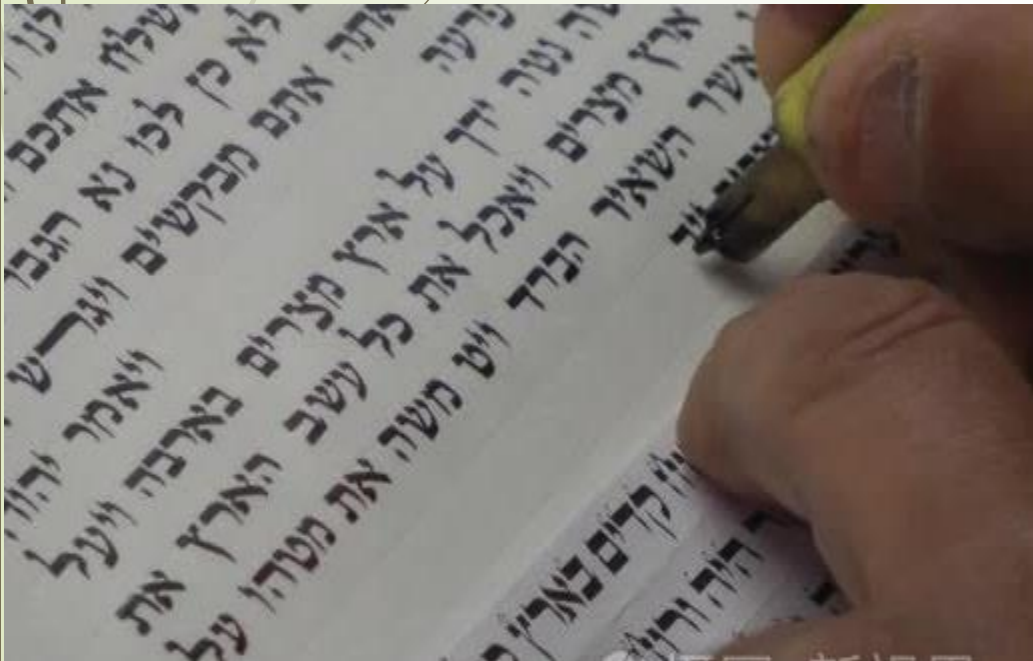 לנו
אשלח אתכם
לא כן לכו נא הגבר
אתה אתם מבקשים ויגרש
פרעה ויאמר יהוה
נטה ידך על ארץ מצרים בארבה ויעל
ארץ מצרים ויאכל את כל עשב הארץ את
אשר השאיר הברד ויט משה את מטהו על
קדים בארץ
היה ורוח